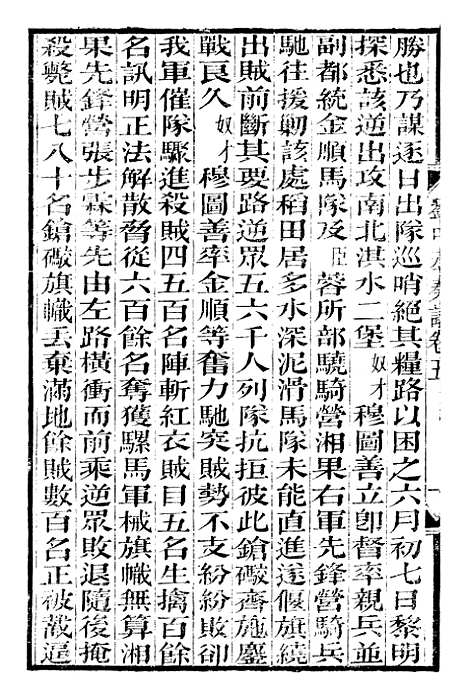 勝也乃謀逐日出隊巡哨絕其糧路以困之六月初七日黎明
探悉該逆出攻南北淇水二堡奴才穆圖善立卽督率親兵並
副都統金順馬隊及臣蓉所部驍騎營湘果右軍先鋒營騎
馳往援勦該處稻田居多水深泥滑馬隊未能直進遂偃旗繞
出賊前斷其要路逆眾五六千人列隊抗拒彼此鎗礮齊施鏖
戰良久奴才穆圖善率金順等奮力馳突賊勢不支紛紛敗卻
我軍催隊驟進殺賊四五百名陣斬紅衣賊目五名生擒百餘
名訊明正法解散脅從六百餘名奪獲騾馬軍械旗幟無算湘
果先鋒營張步霖等先由左路橫衝而前乘逆眾敗退隨後掩
殺斃賊七八十名鎗礮旗幟丟棄滿地餘賊數百名正被截逼
劉中丞奏議卷五